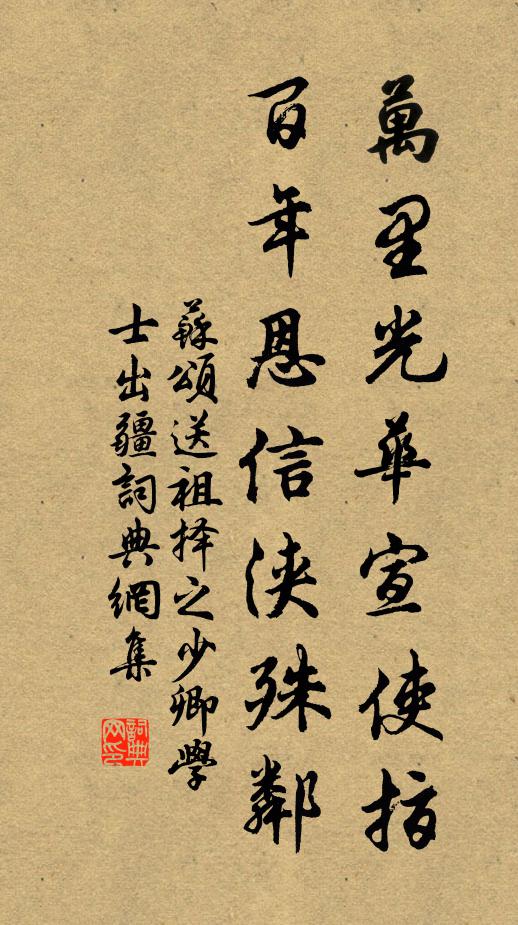 萬里光華宣使指
百年恩信浹殊鄰
蘇頌送祖择之少卿學
士出疆詞典網集
詞典
网印